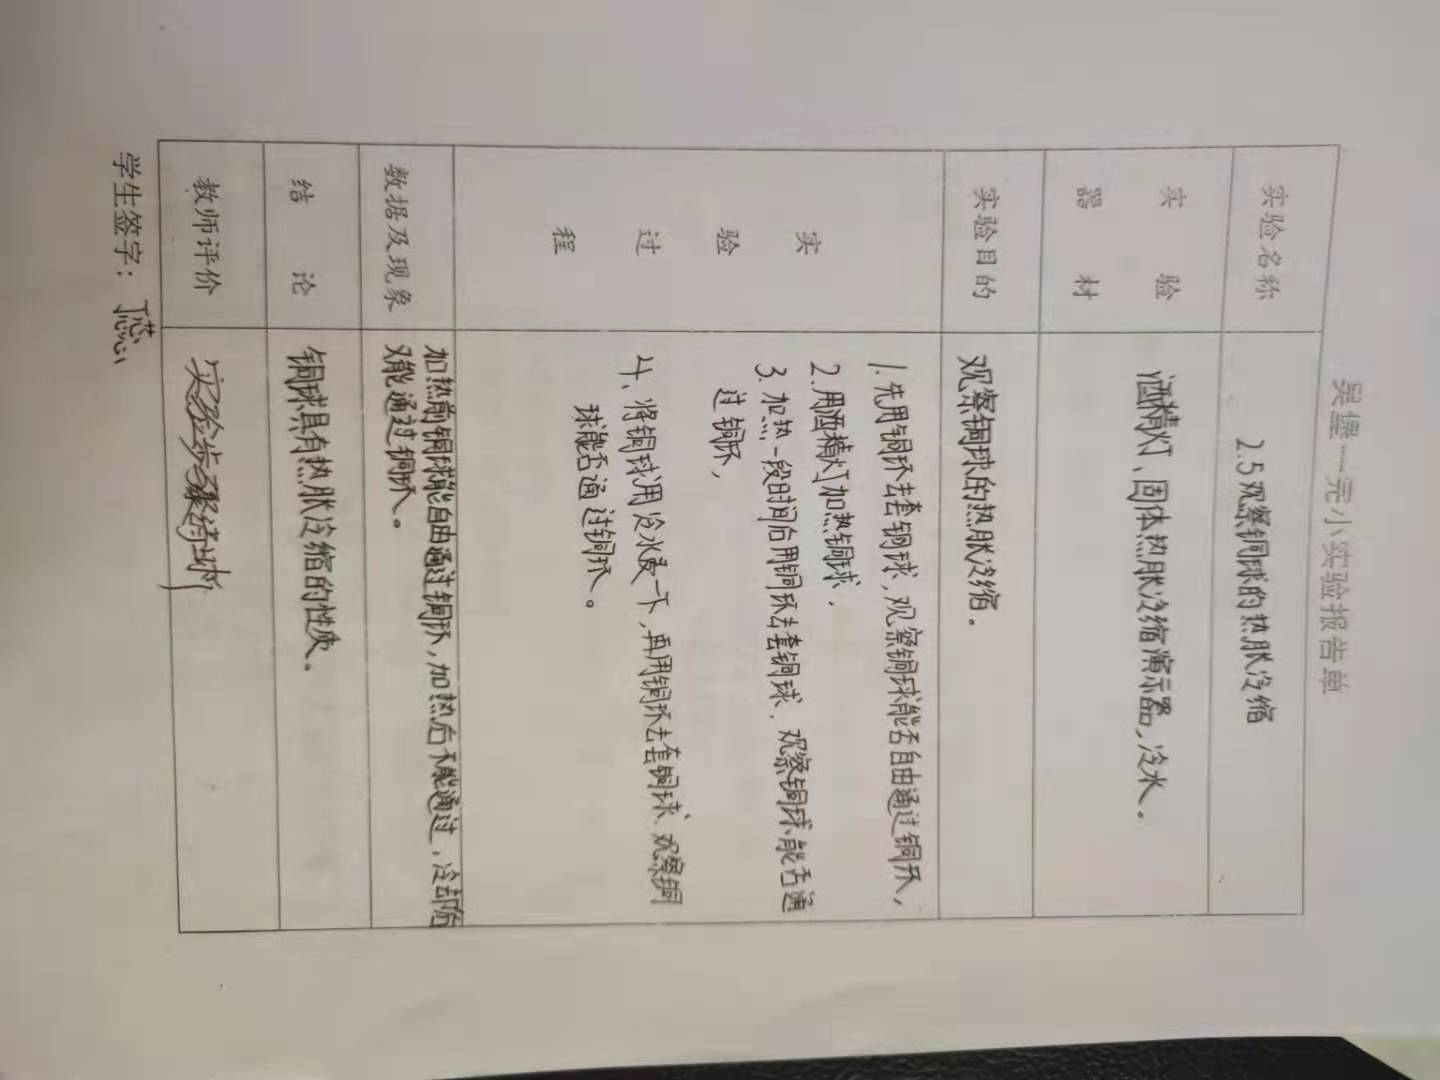 吴堡一完小实验报告单
实验名称 2.5观察铜球的热胀冷缩
实验器材 酒精灯、固体热胀冷缩演示器，冷水。
实验目的 观察铜球的热胀冷缩。
实验过程
1.先用铜环去套铜球，观察铜球能否自由通过铜环，
2.用酒精灯加热铜球，
3.加热一段时间后用铜环去套铜球，观察铜球能否通
过铜环，
4、将铜球用冷水浸一下，再用铜环去套铜球、观察铜
球能否通过铜环。
数据及现象 加热前铜球能自由通过铜环，加热后不能通过，冷却后
又能通过铜环。
结论 铜球具有热胀冷缩的性质。
教师评价 实验步骤清晰
学生签字：